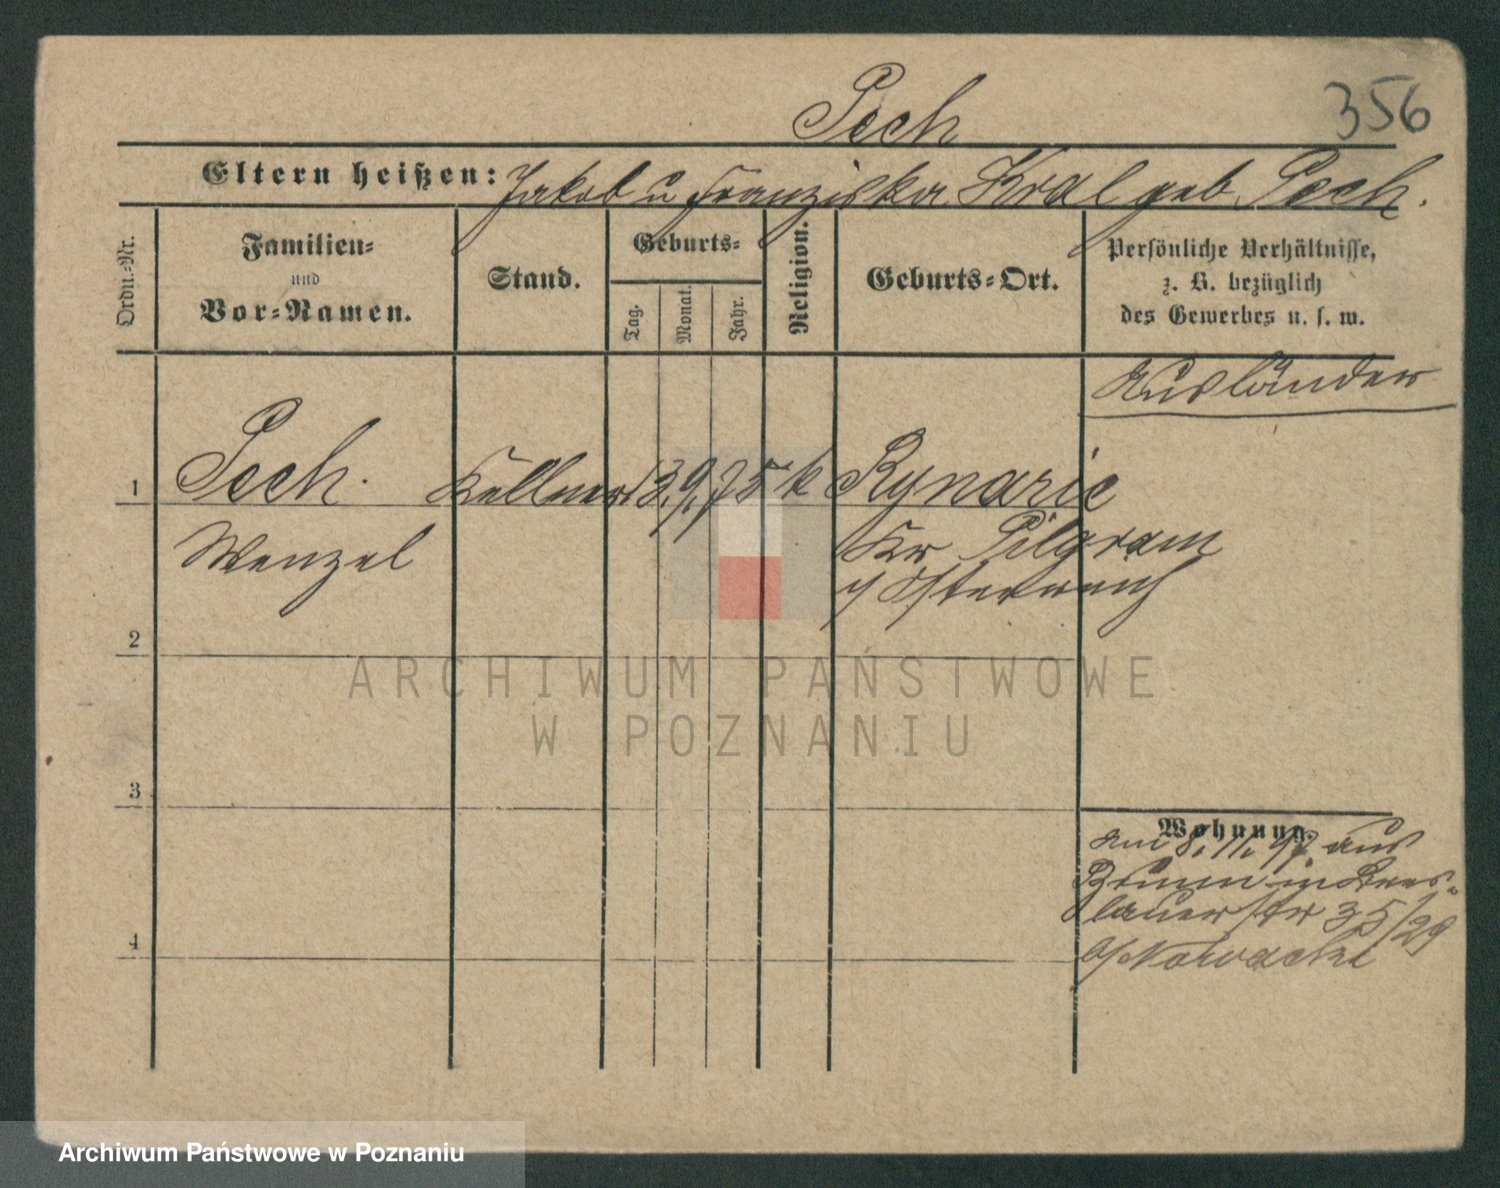 Pech
356
Eltern heißen: Jakob u Franziska Kral geb. Pech.
Ordn.-Nr.
Familien-
und
Vor-Namen.
Stand.
Geburts-
Tag.
Monat.
Jahr.
Religion.
Geburts-Ort.
Persönliche Verhältnisse,
z. B. bezüglich
des Gewerbes u. s. w.
Ausländer
1 Pech. Kellner 13. 9. 75 k Rynaric
Wenzel
Kr Pilgram
i/Österreich
2
3
4
Wohnung.
Am 8. 11. 97. aus
Brünn in Bres-
lauerstr 35/29
b/Nowacki
ARCHIWUM PAŃSTWOWE
W POZNANIU
Archiwum Państwowe w Poznaniu